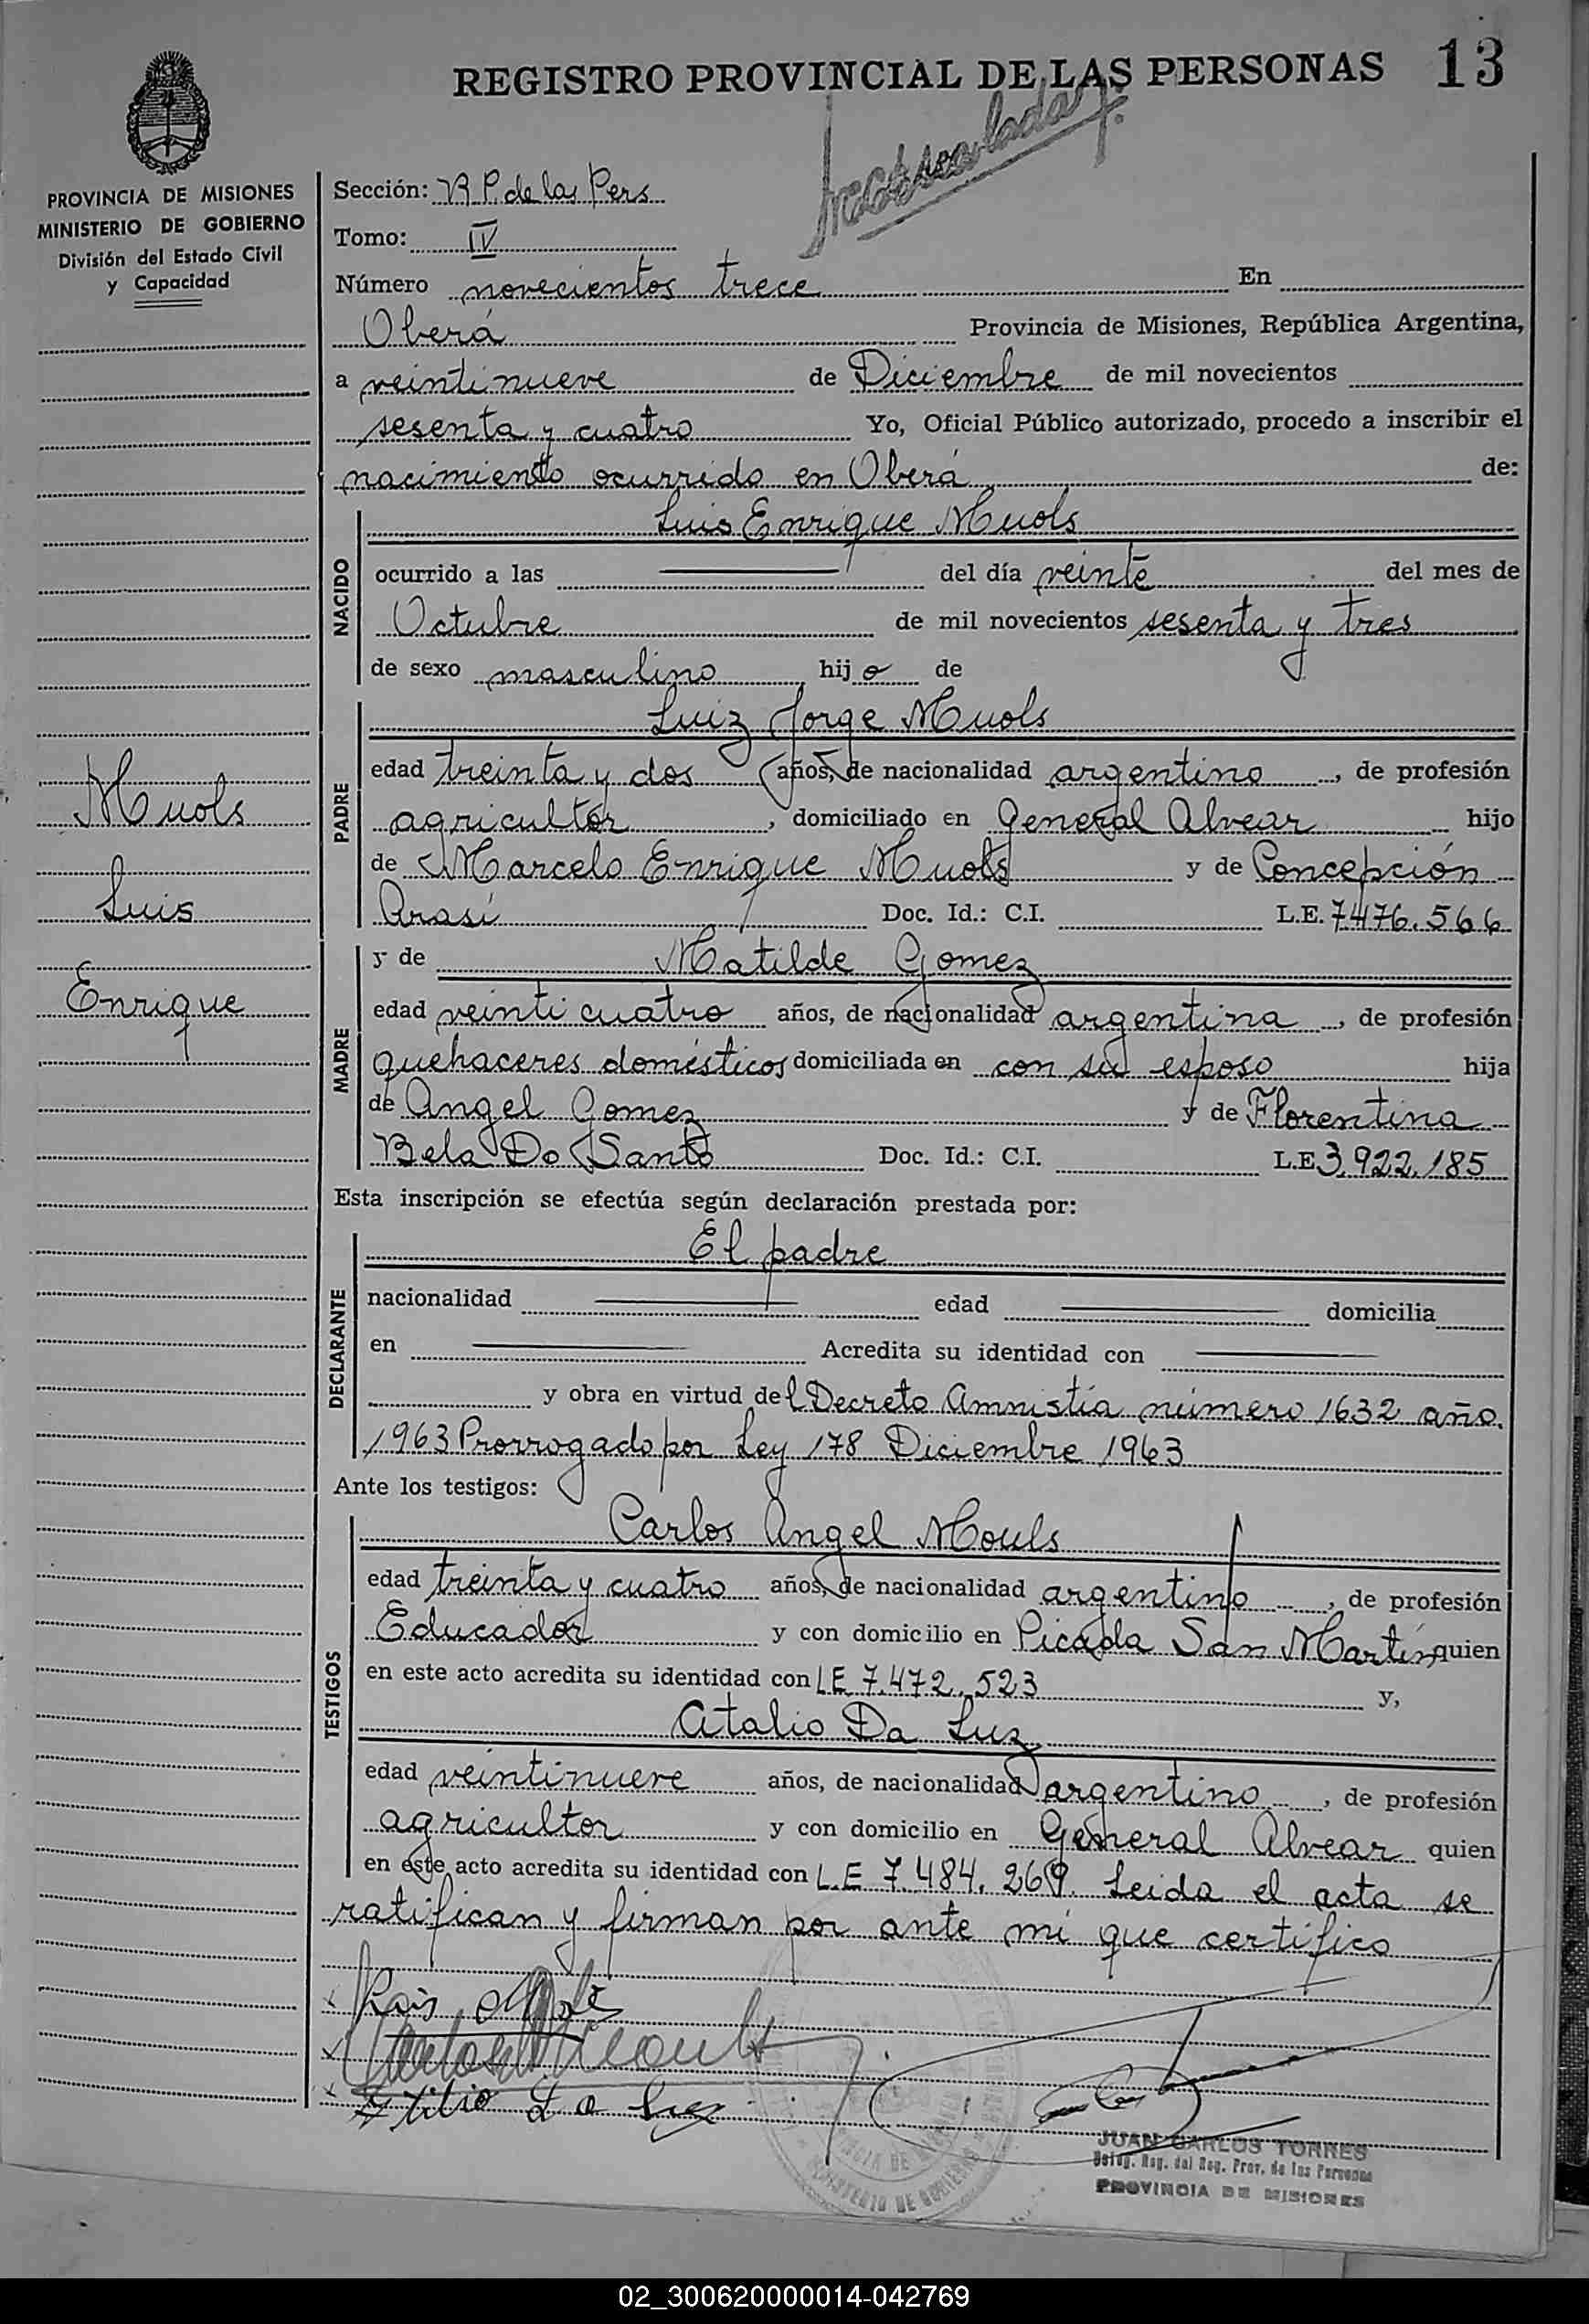 REGISTRO PROVINCIAL DE LAS PERSONAS 13
PROVINCIA DE MISIONES
MINISTERIO DE GOBIERNO
División del Estado Civil
y Capacidad
Muols
Luis
Enrique
Sección: R P. de las Pers
Tomo: IV
Número novecientos trece En
Oberá Provincia de Misiones, República Argentina,
a veintinueve de Diciembre de mil novecientos
sesenta y cuatro Yo, Oficial Público autorizado, procedo a inscribir el
nacimiento ocurrido en Oberá de:
NACIDO
Luis Enrique Muols
ocurrido a las del día veinte del mes de
Octubre de mil novecientos sesenta y tres
de sexo masculino hijo de
PADRE
Luiz Jorge Muols
edad treinta y dos años, de nacionalidad argentino, de profesión
agricultor, domiciliado en General Alvear hijo
de Marcelo Enrique Muols y de Concepción
Arasí Doc. Id.: C.I. L.E. 7476.566
MADRE
y de Matilde Gomez
edad veinti cuatro años, de nacionalidad argentina, de profesión
quehaceres domésticos domiciliada en con su esposo hija
de Angel Gomez y de Florentina
Bela Do Santo Doc. Id.: C.I. L.E 3.922.185
Esta inscripción se efectúa según declaración prestada por:
DECLARANTE
El padre
nacionalidad edad domicilia
en Acredita su identidad con
y obra en virtud del Decreto Amnistía número 1632 año
1963 Prorrogado por Ley 178 Diciembre 1963
Ante los testigos:
TESTIGOS
Carlos Angel Mouls
edad treinta y cuatro años, de nacionalidad argentino, de profesión
Educador y con domicilio en Picada San Martín quien
en este acto acredita su identidad con LE 7.472.523 y,
Atalio Da Luz
edad veintinueve años, de nacionalidad argentino, de profesión
agricultor y con domicilio en General Alvear quien
en este acto acredita su identidad con L.E 7.484.269. Leida el acta se
ratifican y firman por ante mí que certifico
JUAN CARLOS TORRES
Deleg. Reg. del Reg. Prov. de las Personas
PROVINCIA DE MISIONES
02_300620000014-042769